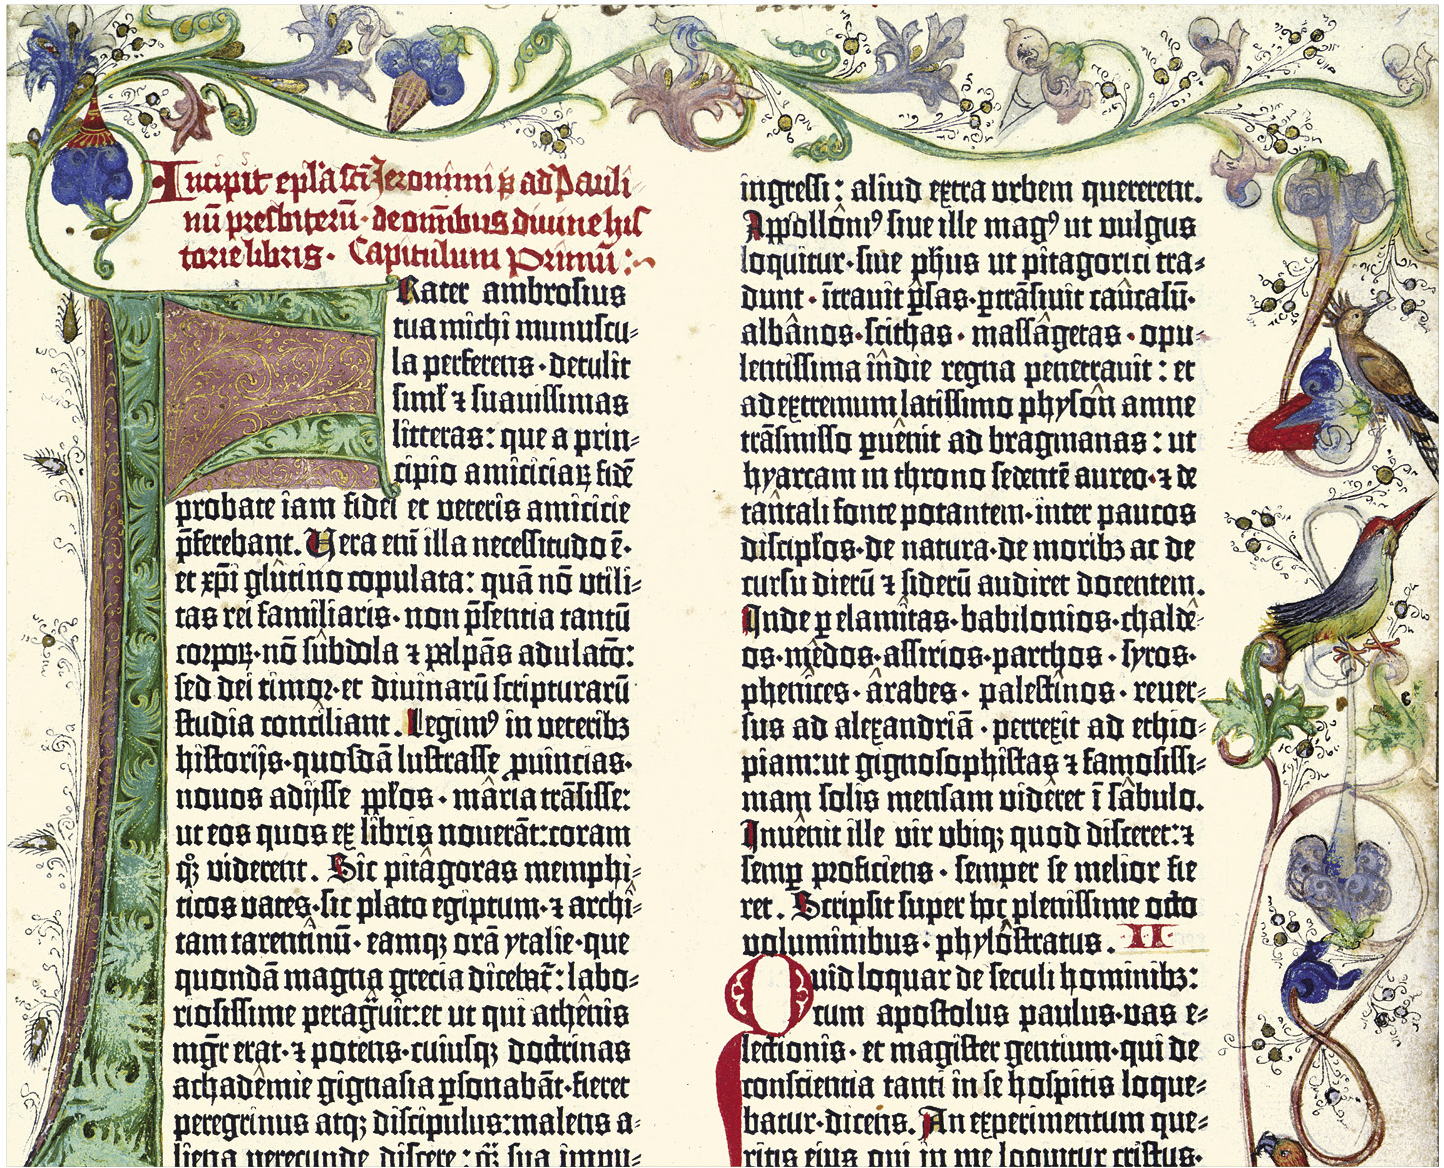 Incipit epl̄a sc̄i Jeronimi p̄ ad Pauli⸗
nū presbiterū· de om̄ibus diuine his
torie libris· Capitulum Primū:~
Frater ambrosius
tua michi munuscu⸗
la perferens· detulit
siml̄ ⁊ suauissimas
litteras: que a prin⸗
cipio amiciciaꝝ fidē
probate iam fidei et veteris amicicie
p̄ferebant. Vera eni͞ illa necessitudo ē·
et xp̄i glutino copulata: quā nō vtili⸗
tas rei familiaris· non p̄sentia tantū
corpoꝝ· nō subdola ⁊ palpās adulatō:
sed dei timor· et diuinarū scripturarū
studia conciliant. Legimꝰ in veteribꝫ
historijs· quosdā lustrasse ꝓuincias·
nouos adijsse pp̄los· maria trāsisse:
ut eos quos ex libris nouerāt: coram
qꝫ viderent. Sic pitagoras memphi⸗
ticos vates· sic plato egiptum· ⁊ archi⸗
tam tarentinū· eamqꝫ orā ytalie· que
quondā magna grecia dicebat̄: labo⸗
riosissime peragūit: et ut qui athenis
mgr̄ erat· ⁊ potens· cuiusqꝫ doctrinas
achademie gignasia ꝑsonabāt· fieret
peregrinus atqꝫ discipulus: malens a⸗
liena verecunde discere: qꝫ̄ sua impu⸗
ingressi: aliud extra vrbem quererent.
Appolloniꝰ siue ille magꝰ ut vulgus
loquitur· siue ph̄us ut pitagorici tra⸗
dunt· ītrauit ꝑsas· ꝑtrāsiuit caucasū·
albanos· scithas· massagetas· opu⸗
lentissima indie regna penetrauit: et
ad extremum latissimo physon amne
trāsmisso ꝑuenit ad bragmanas: ut
hyarcam in throno sedentē aureo· ⁊ de
tantali fonte potantem· inter paucos
discipl̄os· de natura· de moribꝫ ac de
cursu dierū ⁊ siderū audiret docentem.
Inde ꝑ elamitas· babilonios· chalde⸗
os· medos· assirios· parthos· syros·
phenices· arabes· palestinos· reuer⸗
sus ad alexandriā· perrexit ad ethio⸗
piam: ut gignosophistas ⁊ famosissi⸗
mam solis mensam videret ī sabulo.
Inuenit ille vir vbiqꝫ quod disceret: ⁊
semꝑ proficiens· semper se melior fie
ret. Scripsit super hoc plenissime octo
voluminibus· phylostratus. II
Quid loquar de seculi hominibꝫ:
cum apostolus paulus· vas e⸗
lectionis· et magister gentium· qui de
conscientia tanti in se hospitis loque⸗
batur· dicens. An experimentum que⸗
ritis eius qui in me loquitur cristus·